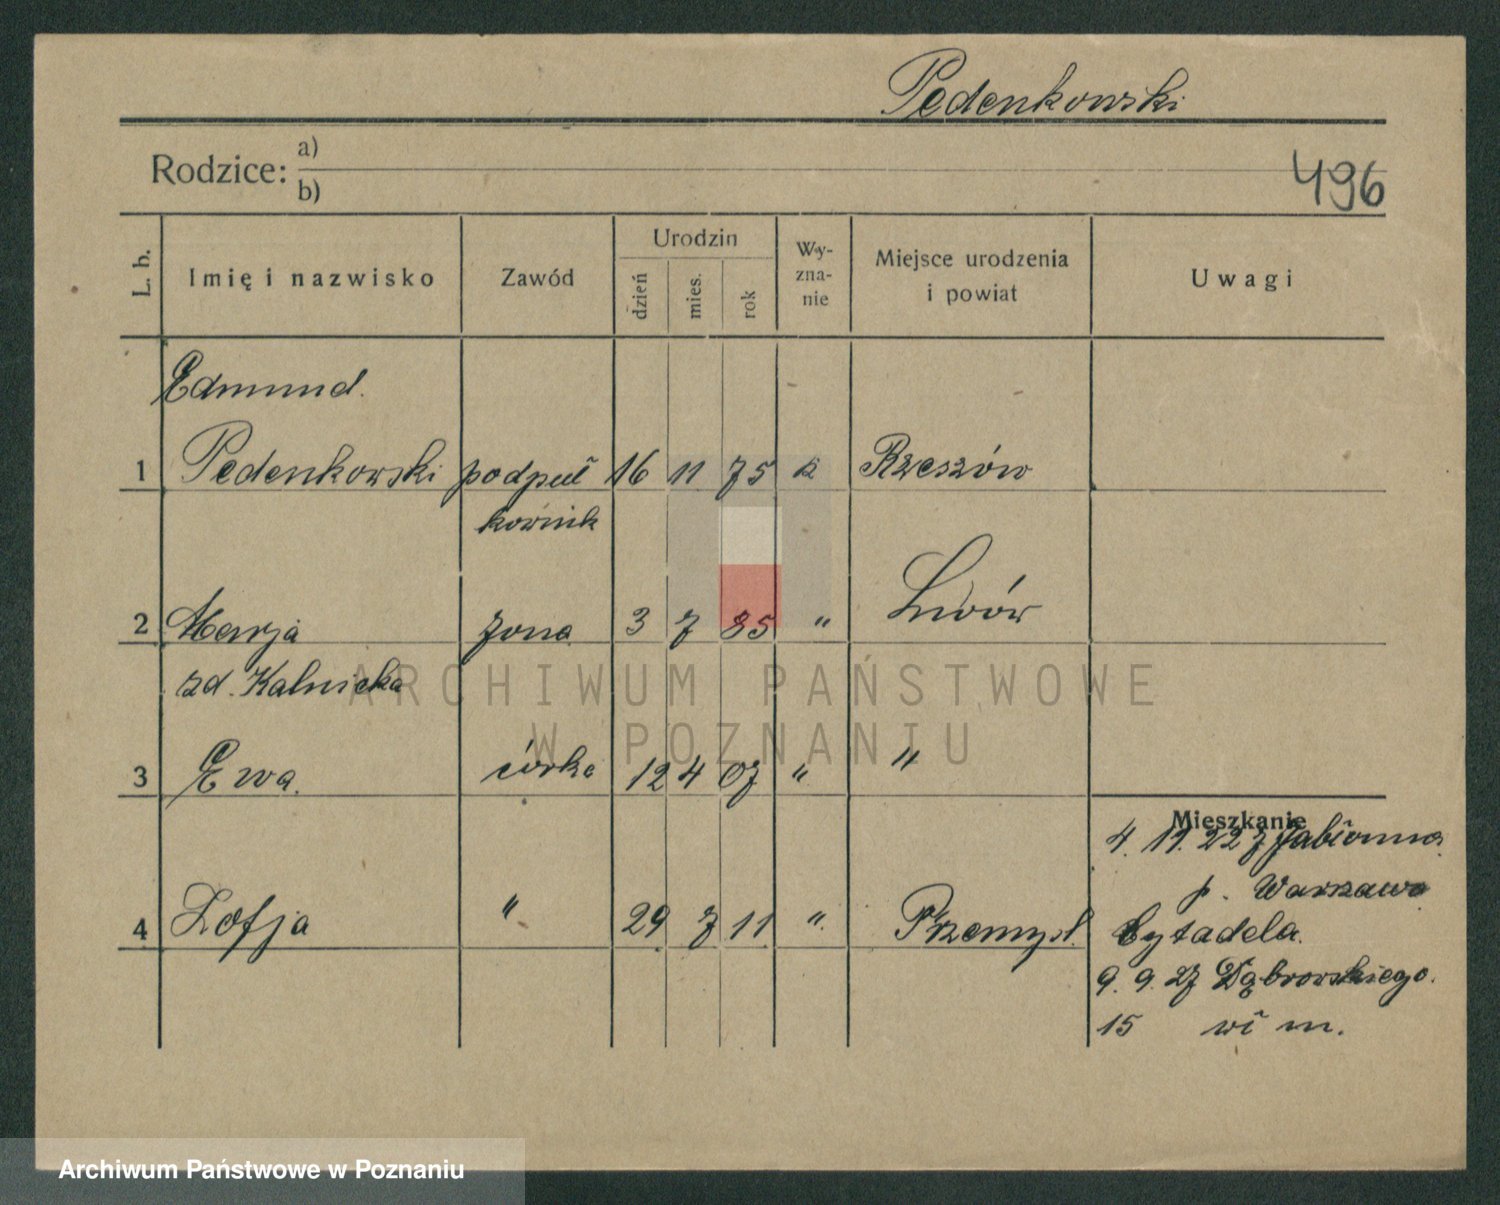 Pedenkowski
Rodzice: a)
b)
496
L. b. Imię i nazwisko Zawód Urodzin dzień mies. rok Wy-zna-nie Miejsce urodzenia i powiat Uwagi
Edmund.
1 Pedenkowski podpuł 16 11 75 k Rzeszów
kownik
2 Marja żona 3 7 85 " Lwów
zd. Kalnicka
ARCHIWUM PAŃSTWOWE
W POZNANIU
3 Ewa. córka 12 4 07 " "
Mieszkanie
4. 11. 22 z Jabłonna
p. Warszawa
4 Zofja " 29 7 11 " Przemysl.
Cytadela.
9. 9. 27 Dąbrowskiego.
15 wł m.
Archiwum Państwowe w Poznaniu